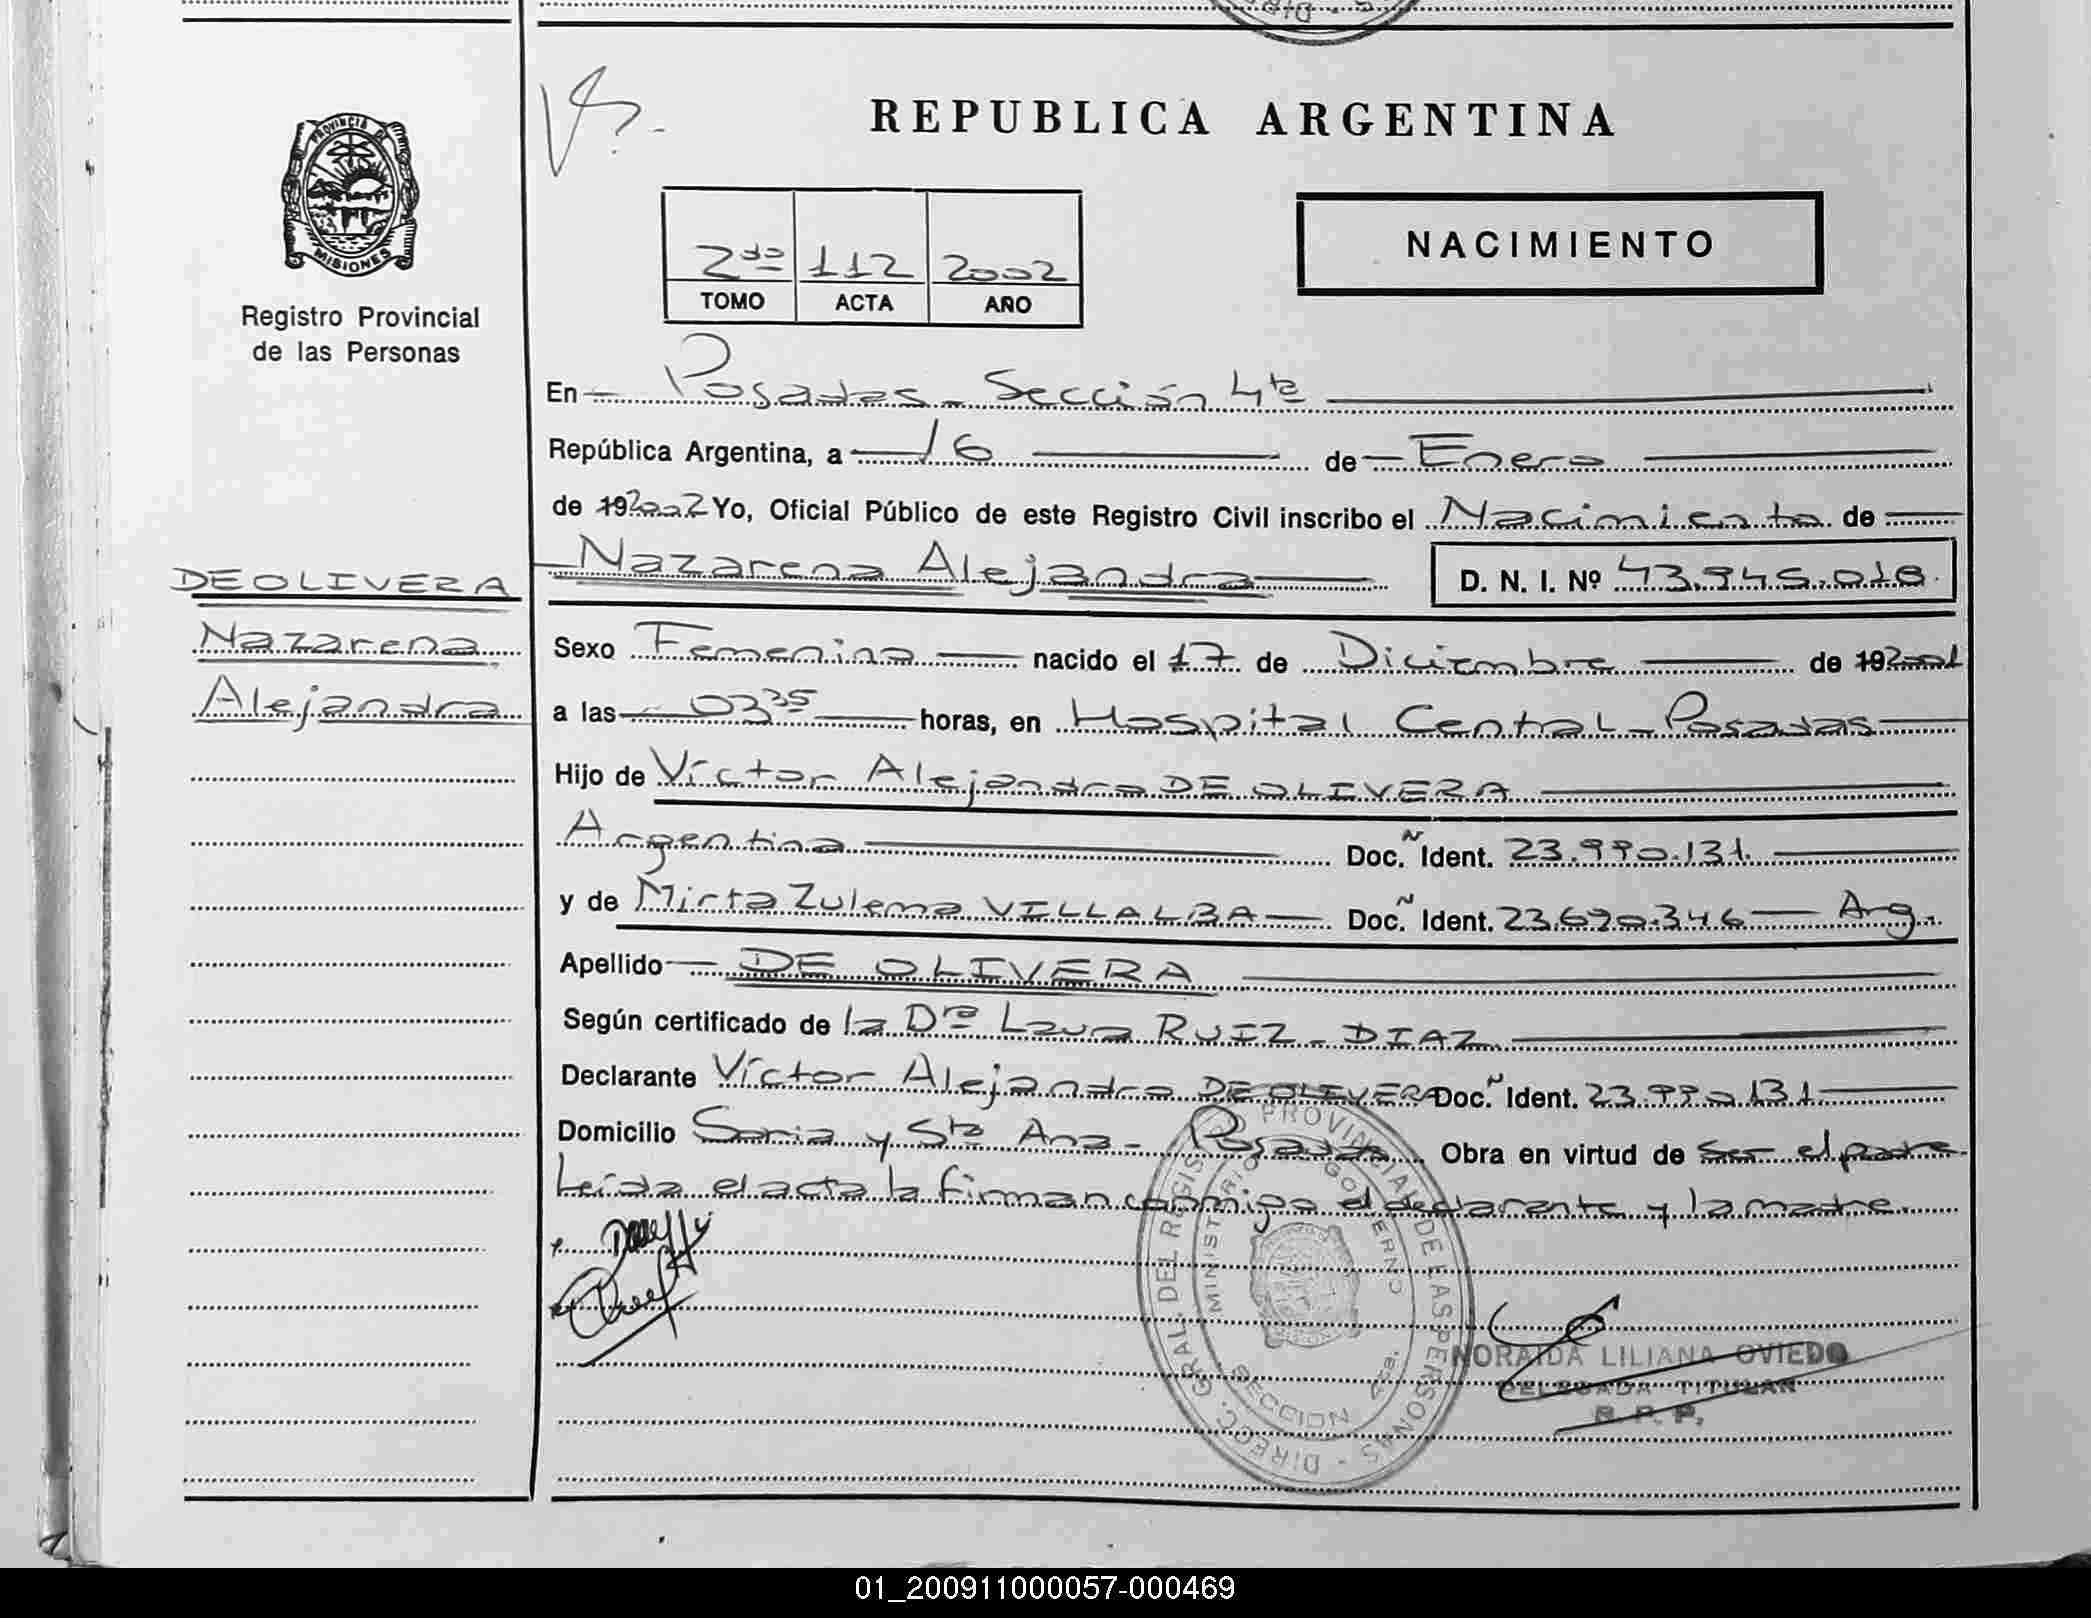 PROVINCIA DE
MISIONES
Registro Provincial
de las Personas
DE OLIVERA
Nazarena
Alejandra
REPUBLICA ARGENTINA
2do 112 2002
TOMO ACTA AÑO
NACIMIENTO
En Posadas - Sección 4ta
República Argentina, a 16 de Enero
de 19 2002 Yo, Oficial Público de este Registro Civil inscribo el Nacimiento de
Nazarena Alejandra D. N. I. Nº 43.945.018.
Sexo Femenino nacido el 17 de Diciembre de 19 2001
a las 03 35 horas, en Hospital Central - Posadas
Hijo de Víctor Alejandro DE OLIVERA
Argentina Doc. Ident. 23.990.131.
y de Mirta Zulema VILLALBA Doc. Ident. 23.690.346 Arg.
Apellido DE OLIVERA
Según certificado de la Dra Laura RUIZ - DIAZ
Declarante Víctor Alejandro DE OLIVERA Doc. Ident. 23.990.131
Domicilio Soria y Sta Ana - Posadas Obra en virtud de ser el padre
Leída el acta la firman conmigo el declarante y la madre.
DIRECC. GRAL. DEL REGIS. PROVINCIAL DE LAS PERSONAS
MINISTERIO GOBIERNO
SECCION 4ta.
NORAIDA LILIANA OVIEDO
DELEGADA TITULAR
R. P. P.
01_200911000057-000469